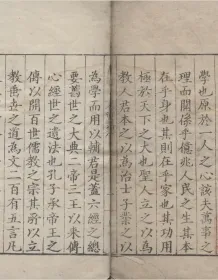 學也原於一人之心該夫萬事之
理而關係乎億兆人民之生其本
在乎身也其則在乎家也其功用
極於天下之大也聖人立之以為
教人君本之以為治士子業之以
為學而用以輔君是蓋六經之總
要萬世之大典二帝三王以來傳
心經世之遺法也孔子承帝王之
傳以開百世儒教之宗其所立
教垂世之道為文二百有五言凡